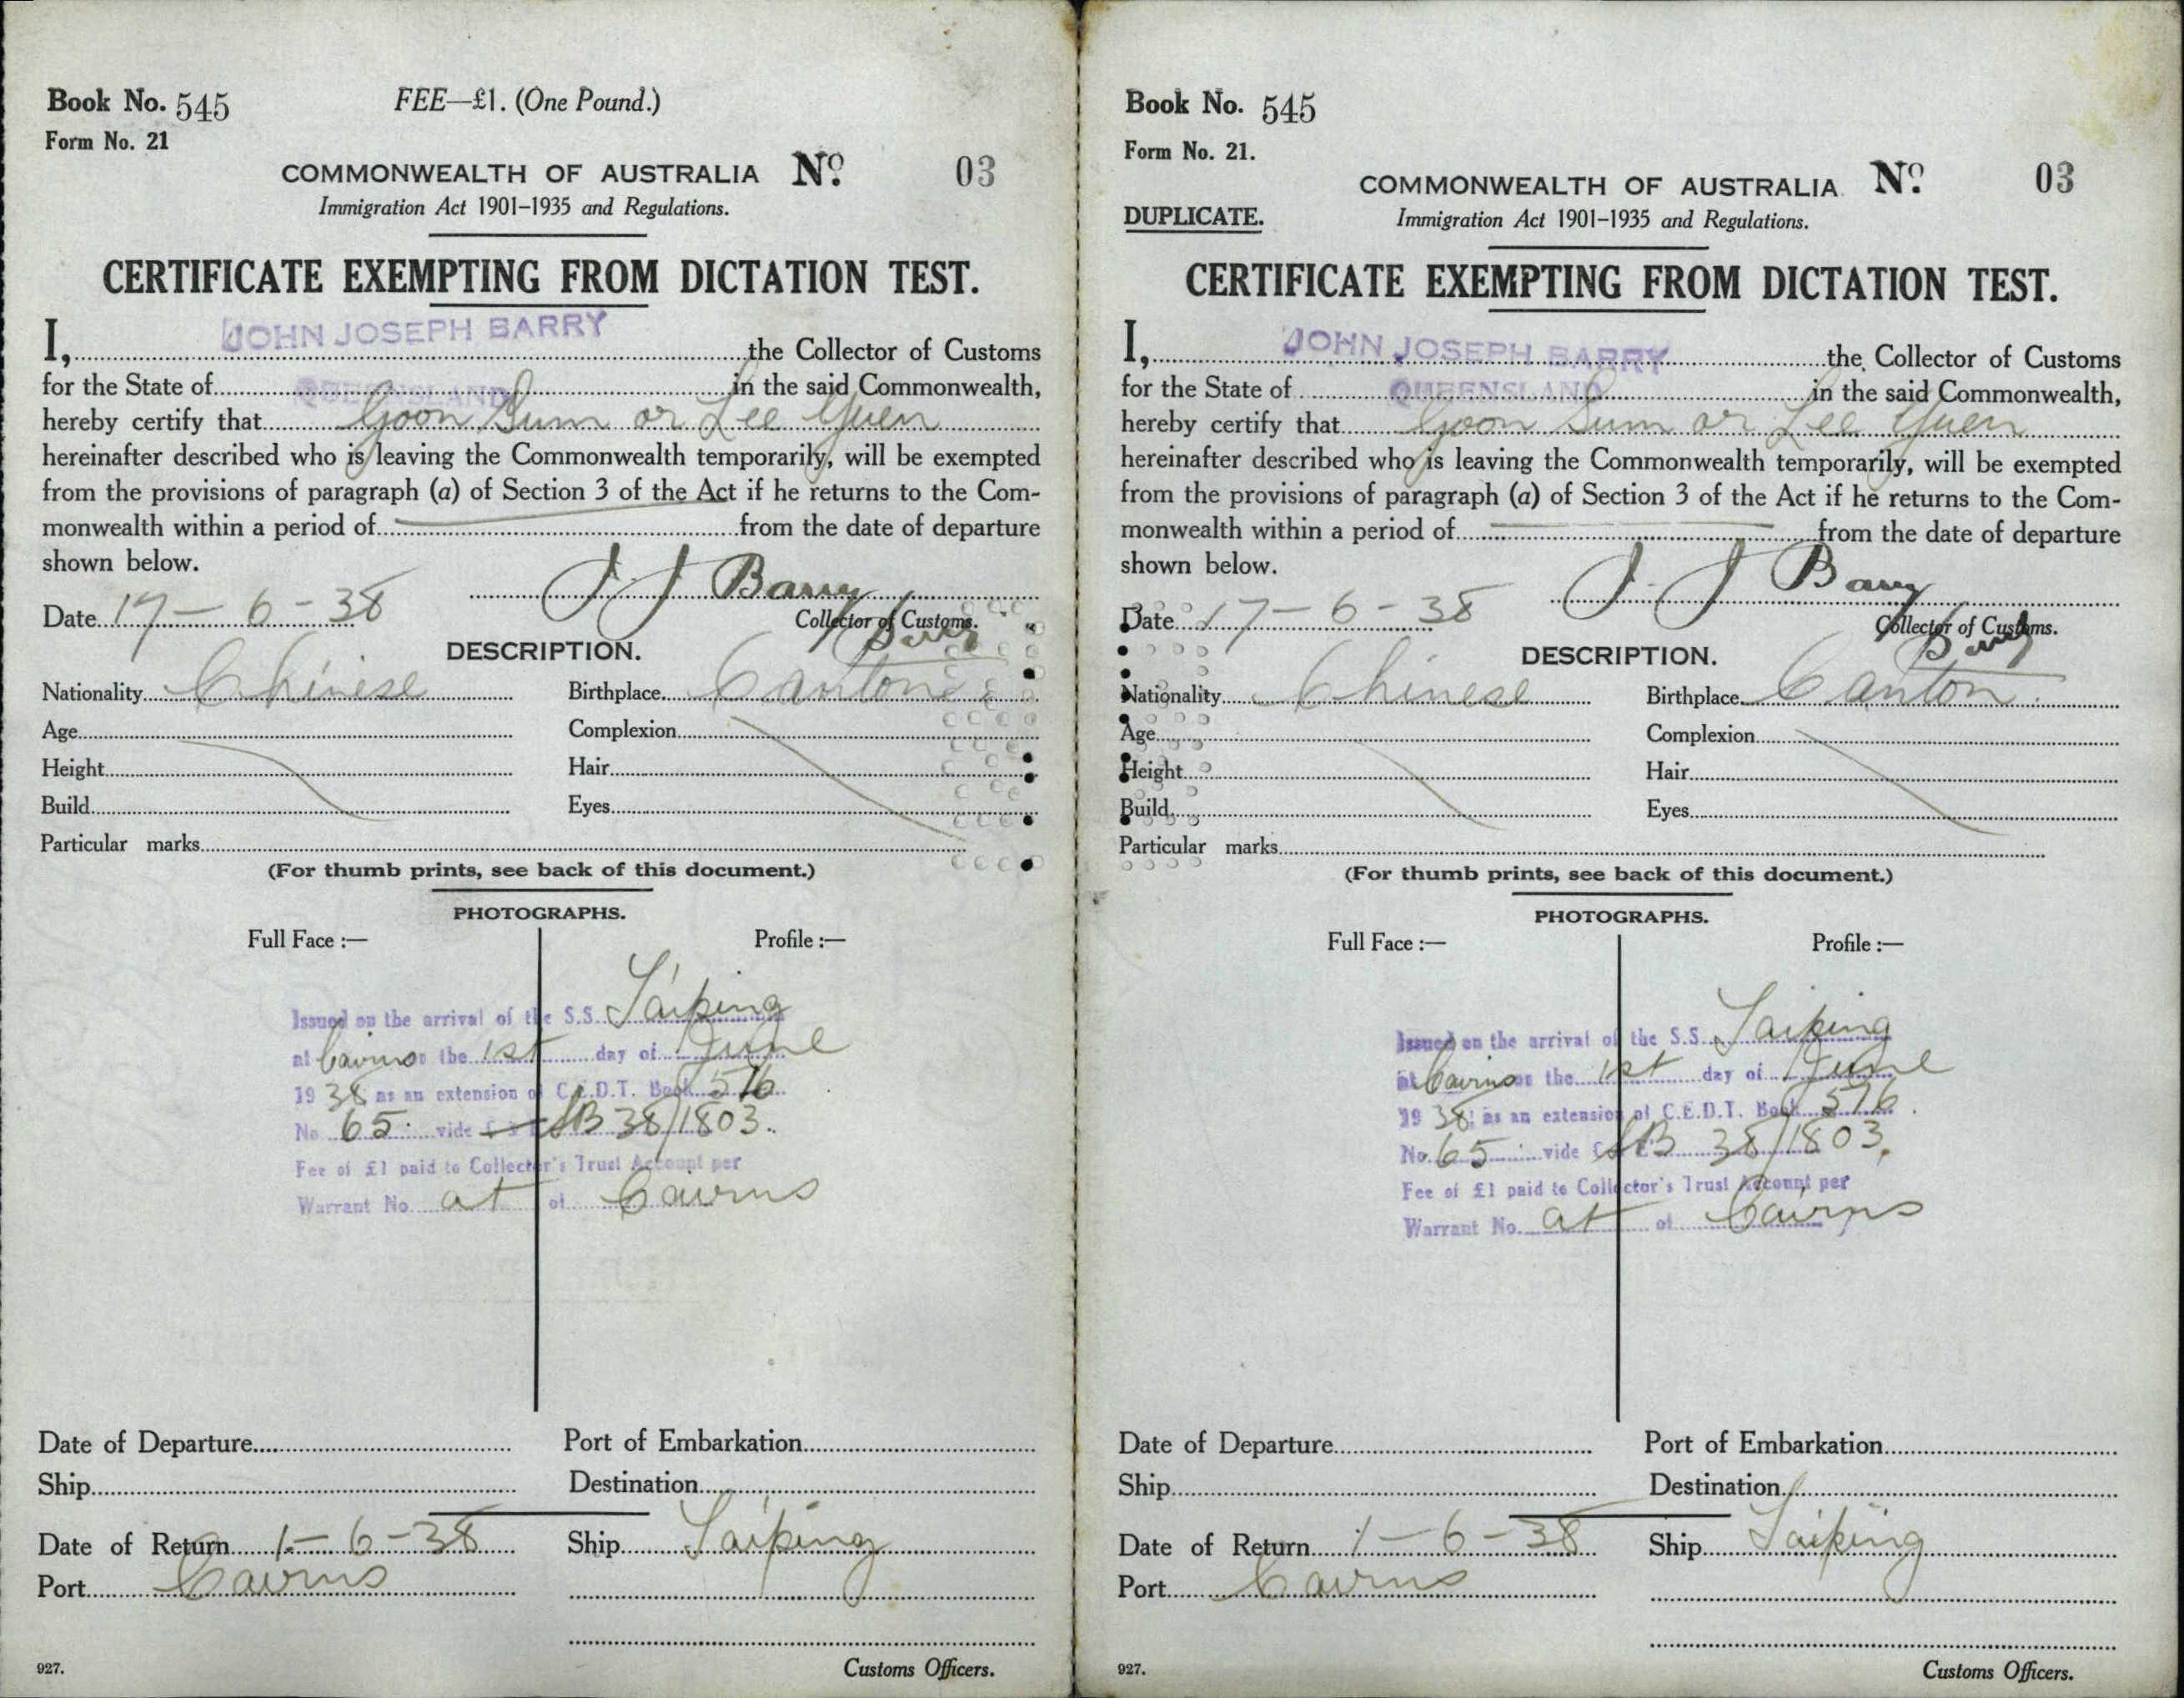 Book No. 545
FEE—£1. (One Pound.)
Form No. 21
COMMONWEALTH OF AUSTRALIA Nº 03
Immigration Act 1901–1935 and Regulations.
CERTIFICATE EXEMPTING FROM DICTATION TEST.
I, JOHN JOSEPH BARRY the Collector of Customs
for the State of QUEENSLAND in the said Commonwealth,
hereby certify that Goon Sum or Lee Yuen
hereinafter described who is leaving the Commonwealth temporarily, will be exempted
from the provisions of paragraph (a) of Section 3 of the Act if he returns to the Com-
monwealth within a period of from the date of departure
shown below.
J J Barry
Date 17–6–38
Collector of Customs.
DESCRIPTION.
Nationality Chinese Birthplace Canton
Age Complexion
Height Hair
Build Eyes
Particular marks
(For thumb prints, see back of this document.)
PHOTOGRAPHS.
Full Face :— Profile :—
Issued on the arrival of the S.S. Taiping
at Cairns on the 1st day of June
1938 as an extension of C.E.D.T. Book 516
No. 65 vide SB 38/1803.
Fee of £1 paid to Collector's Trust Account per
Warrant No. at of Cairns
Date of Departure Port of Embarkation
Ship Destination
Date of Return 1–6–38 Ship Taiping
Port Cairns
927. Customs Officers.
Book No. 545
Form No. 21.
COMMONWEALTH OF AUSTRALIA Nº 03
DUPLICATE. Immigration Act 1901–1935 and Regulations.
CERTIFICATE EXEMPTING FROM DICTATION TEST.
I, JOHN JOSEPH BARRY the Collector of Customs
for the State of QUEENSLAND in the said Commonwealth,
hereby certify that Goon Sum or Lee Yuen
hereinafter described who is leaving the Commonwealth temporarily, will be exempted
from the provisions of paragraph (a) of Section 3 of the Act if he returns to the Com-
monwealth within a period of from the date of departure
shown below.
J. J Barry
Date 17–6–38
Collector of Customs.
DESCRIPTION.
Nationality Chinese Birthplace Canton.
Age Complexion
Height Hair
Build Eyes
Particular marks
(For thumb prints, see back of this document.)
PHOTOGRAPHS.
Full Face :— Profile :—
Issued on the arrival of the S.S. Taiping
at Cairns on the 1st day of June
1938 as an extension of C.E.D.T. Book 516.
No. 65 vide SB 38/1803.
Fee of £1 paid to Collector's Trust Account per
Warrant No. at of Cairns
Date of Departure Port of Embarkation
Ship Destination
Date of Return 1–6–38 Ship Taiping
Port Cairns
927. Customs Officers.